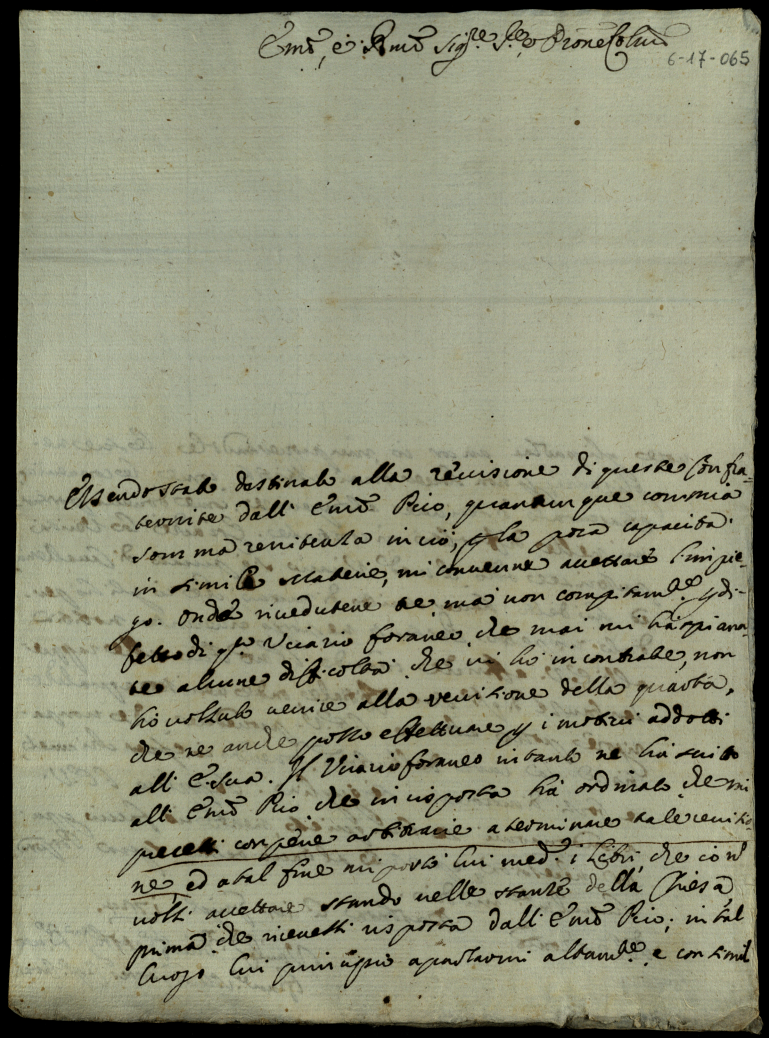 Em̃o, e Rm̃o Sig.re S.re e Pròne Col.mo
6-17-065
Essendo stato destinato alla revisione di queste Confra-
ternite dall'Em̃o Pico, quantunque con mia
somma renitenza in ciò, p la poca capacità
in simile materie, mi convenne accettare l'impie-
go. onde rivedutene tre ma non compitam.te p di-
fetto di q.to Vicario foraneo che mai mi hà spiana-
te alcune difficoltà che vi hò incontrate, non
hò voluto venire alla revisione della quarta,
che ne anche posso effettuare p i motivi addotti
all'E. Sua. Il Vicario foraneo intanto ne hà scritto
all'Em̃o Pico che in risposta hà ordinato che mi
precetti con pene arbitrarie a terminare tale revisio-
ne ed a tal fine mi portò lui med.o i libri, che io nõ
volli accettare stando nelle stanze della Chiesa
prima che ricevetti risposta dall'Em̃o Pico; in tal
luogo lui principiò a parlarmi altam.te e con simil